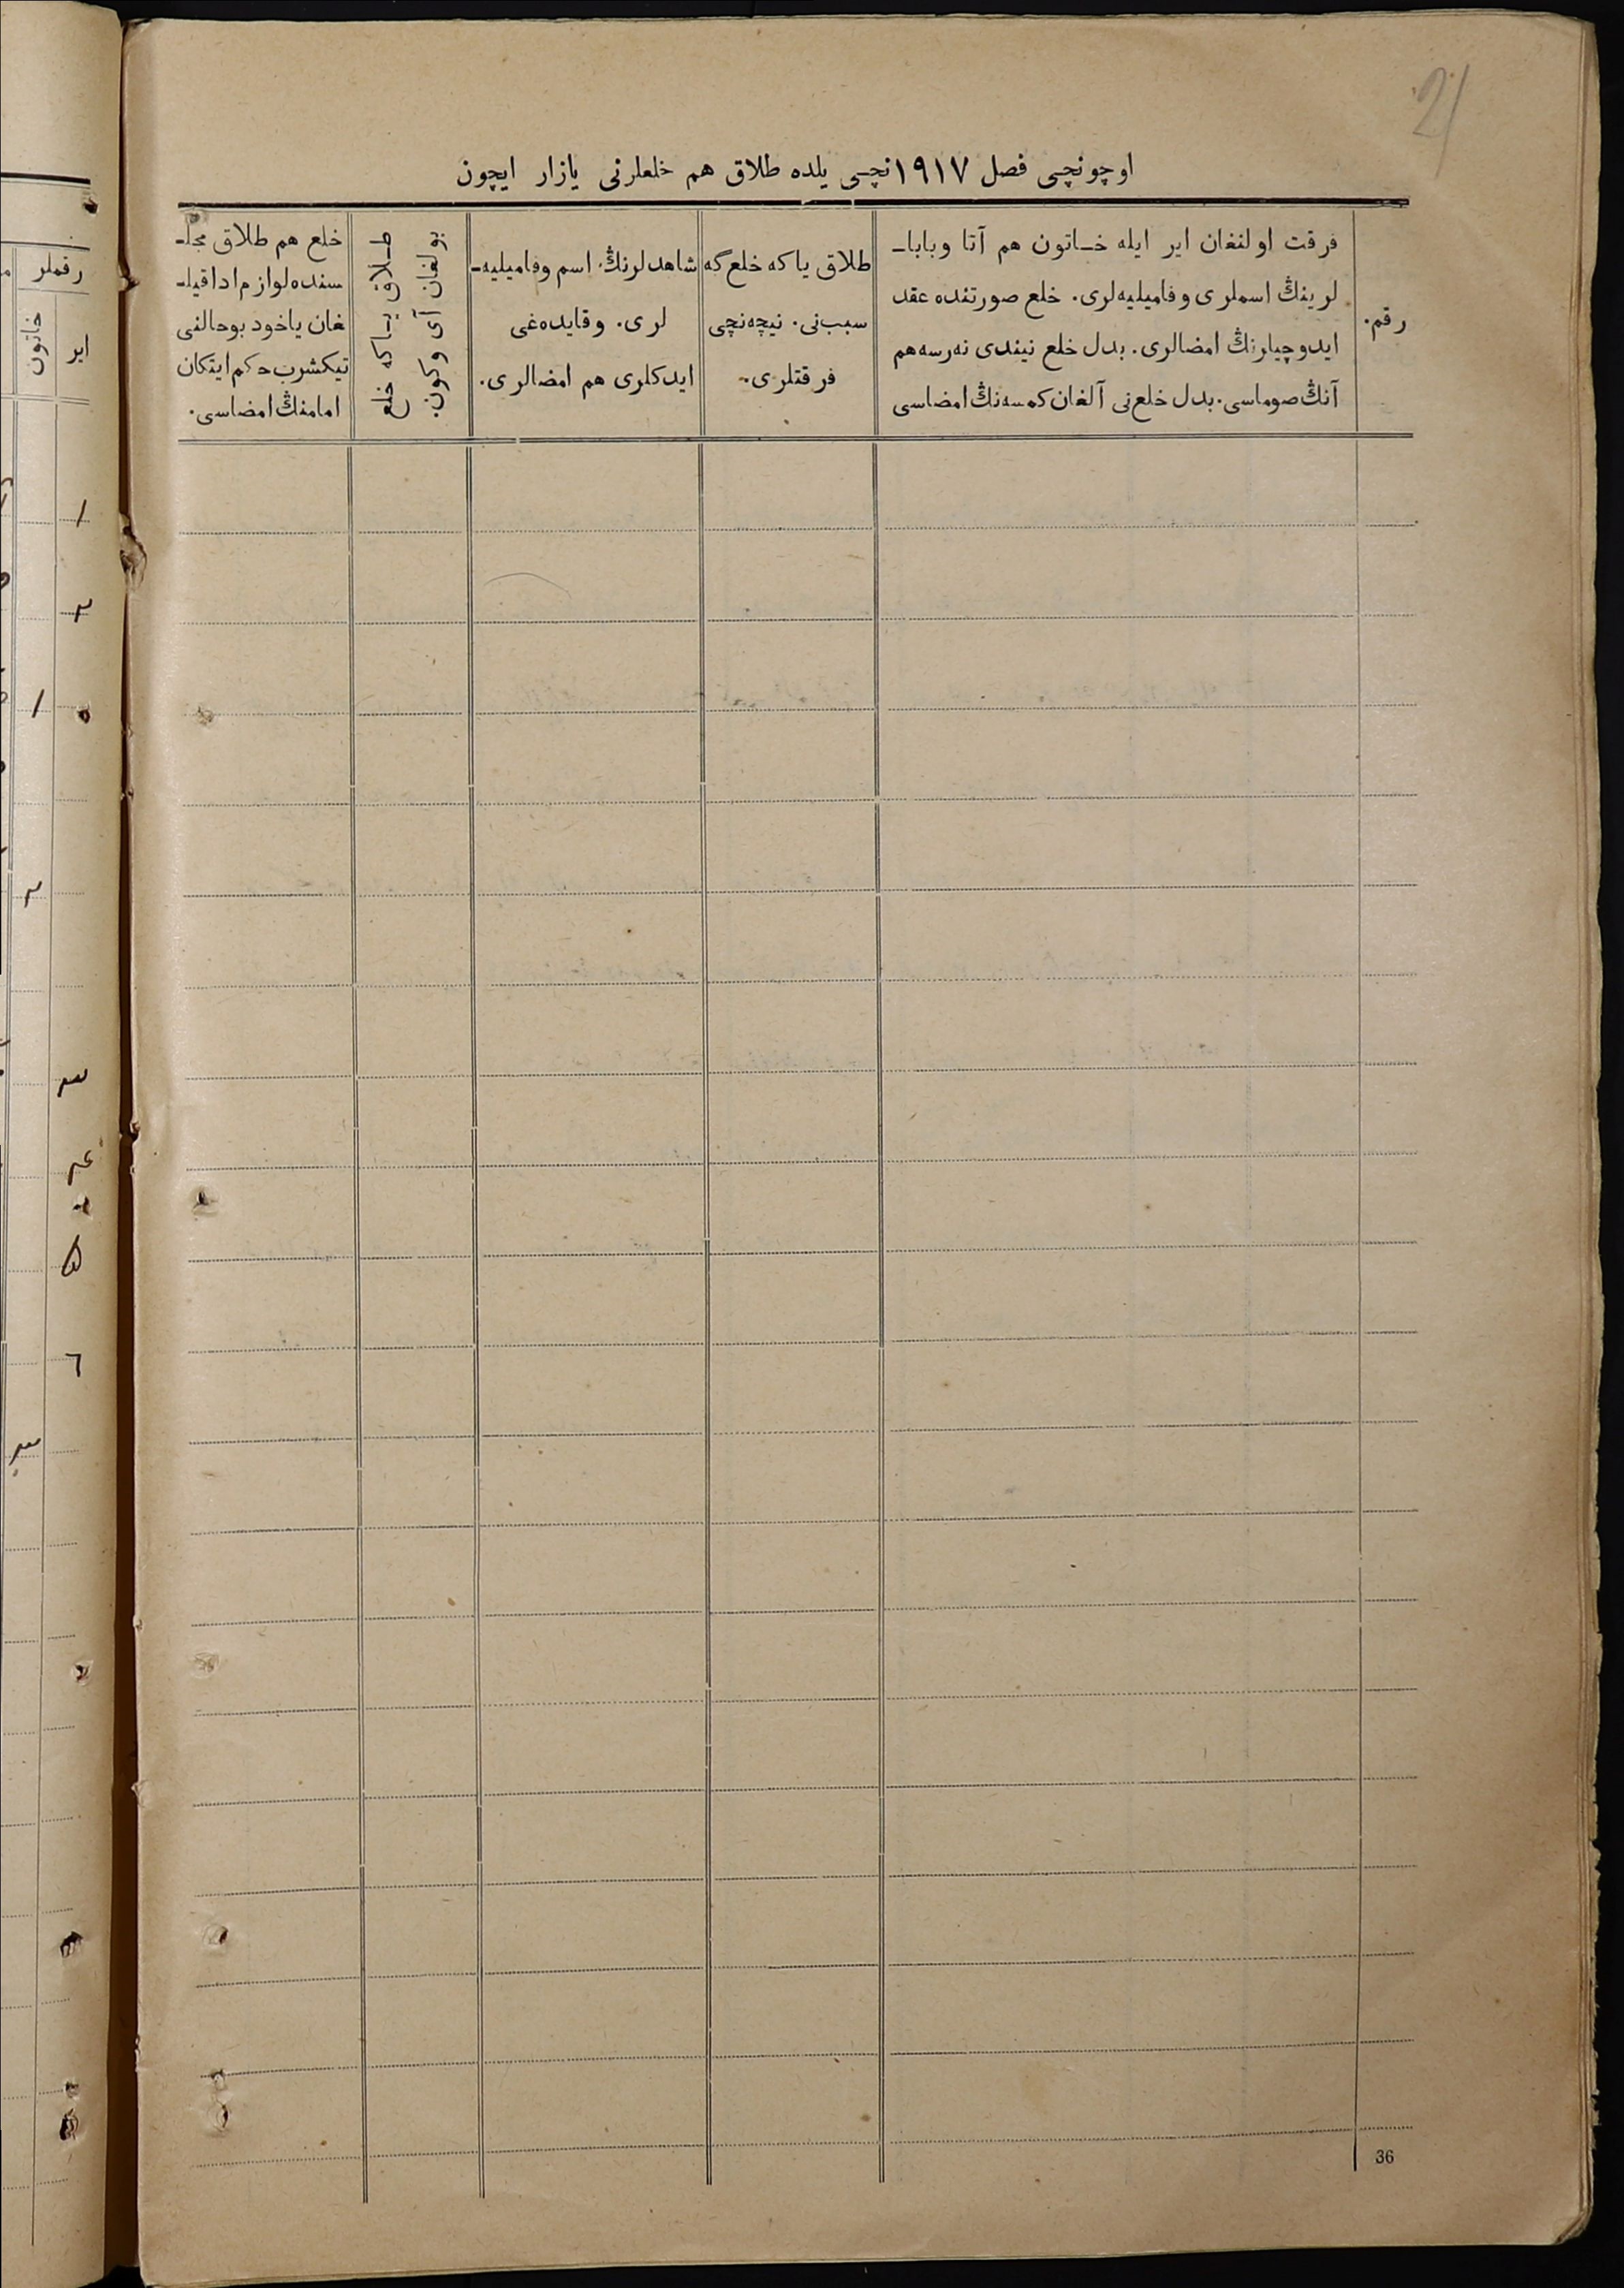 21
اوچونچی فصل ۱۹۱۷نچی یلده طلاق هم خلعلرنی یازار ایچون
رقم.
فرقت اولنغان ایر ایله خاتون هم آتا وبابا-
لرینڭ اسملری وفامیلیه‌لری. خلع صورتنده عقد
ایدوچیلرنڭ امضالری. بدل خلع نیندی نه‌رسه هم
آنڭ صوماسی. بدل خلع‌نی آلغان کمسه‌نڭ امضاسی
طلاق یاکه خلع‌گه
سبب‌نی. نیچه‌نچی
فرقتلری.
شاهدلرنڭ اسم وفامیلیه-
لری. وقایده‌غی
ایدکلری هم امضالری.
طلاق یاکه خلع
بولغان آی وکون.
خلع هم طلاق مجلـ
سنده لوازم ادا قیلـ
غان یاخود بوحالنی
تیکشرب حکم ایتکان
امامنڭ امضاسی.
رقملر
ایر
خاتون
۱
۲
۱
۲
۳
۴
۵
۶
۳
36